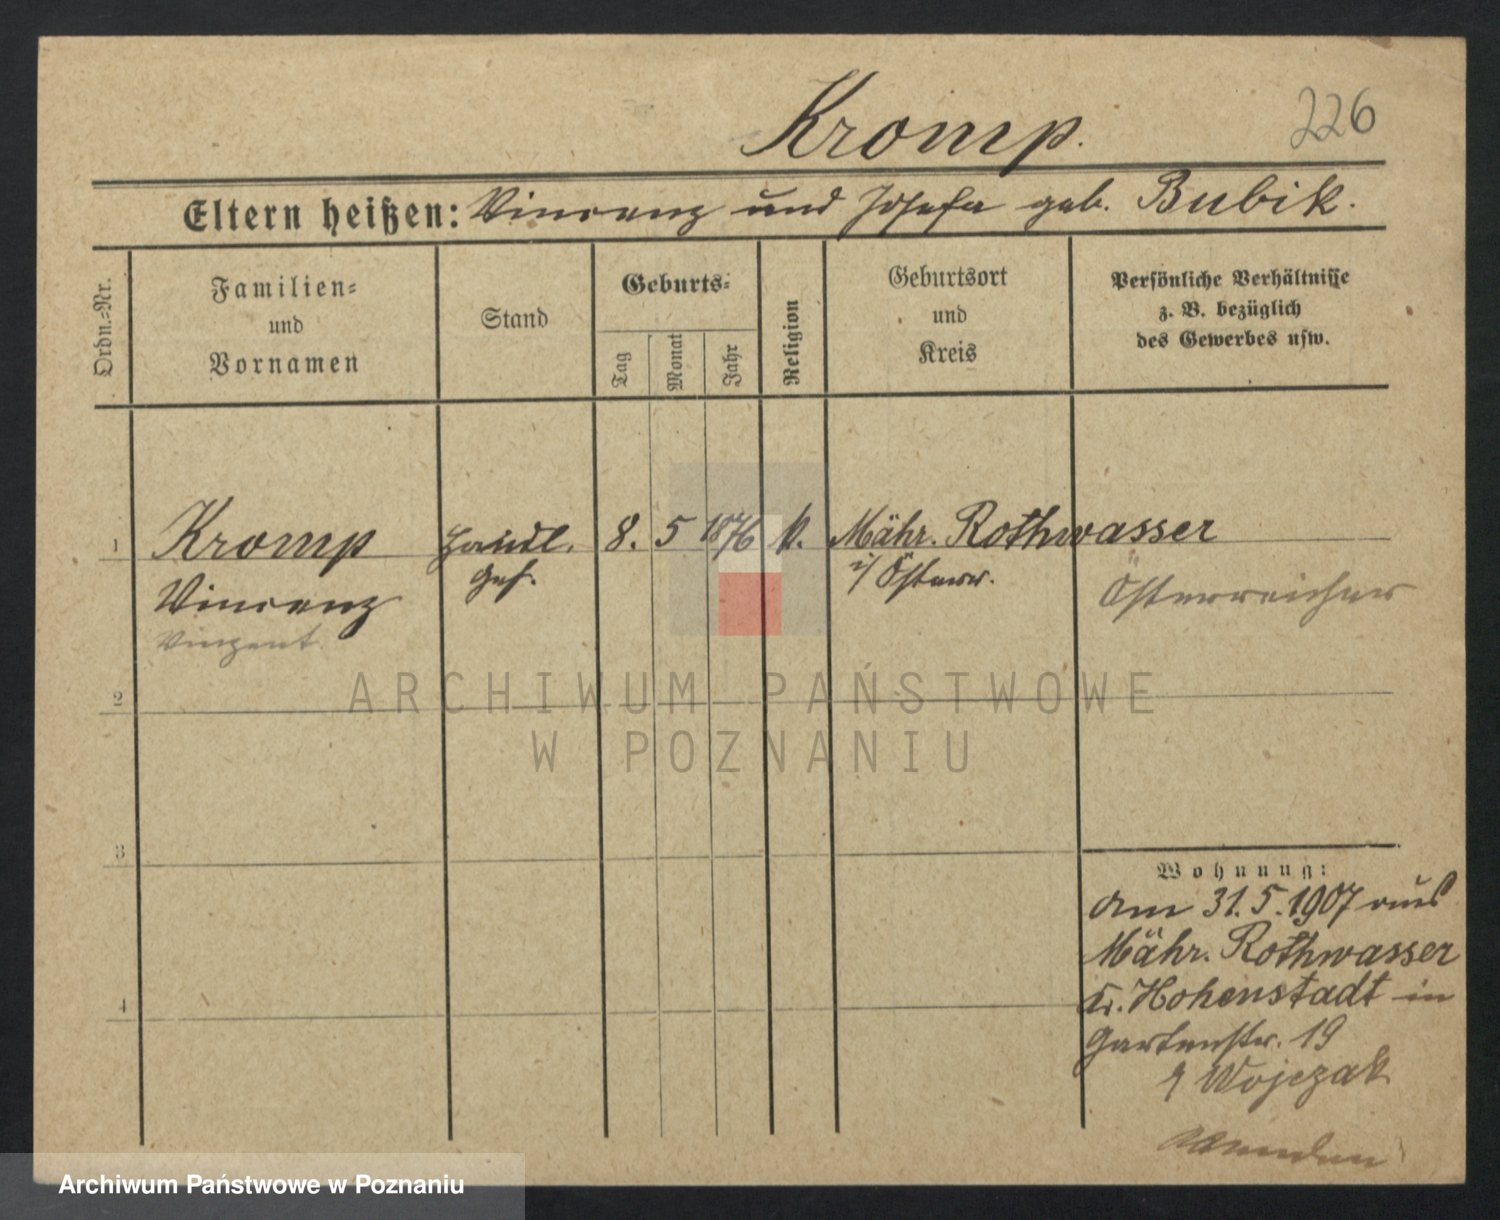 Kromp.
226
Eltern heißen: Vincenz und Josefa geb. Bubik.
Ordn.-Nr.
Familien-
und
Vornamen
Stand
Geburts-
Tag
Monat
Jahr
Religion
Geburtsort
und
Kreis
Persönliche Verhältnisse
z. B. bezüglich
des Gewerbes usw.
1 Kromp Handl. 8. 5 1876 k. Mähr. Rothwasser
Vincenz Geh. i/ Österr. Österreicher
Vinzent
2
ARCHIWUM PAŃSTWOWE
W POZNANIU
3
Wohnung:
am 31.5.1907 aus
Mähr. Rothwasser
Kr. Hohenstadt in
4
Gartenstr. 19
Wojczak
Archiwum Państwowe w Poznaniu